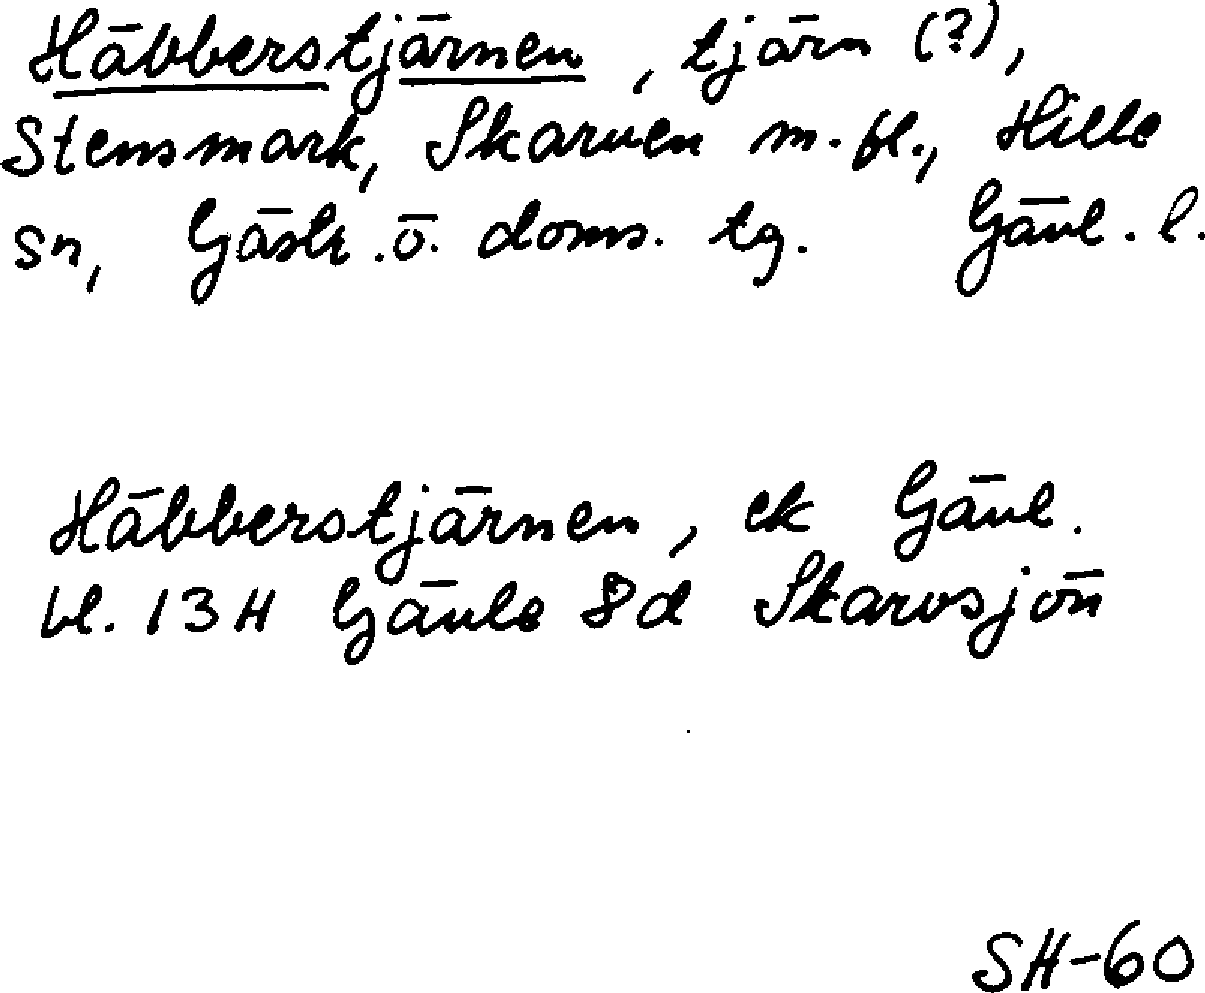 Häbberstjärnen, tjärn (?),
Stensmark, Skarven m.fl., Hille
sn, Gästr. ö. doms. tg. Gävl. l.
Häbberstjärnen, ek Gävl.
bl. 13H Gävle 8d Skarvsjön
SH-60